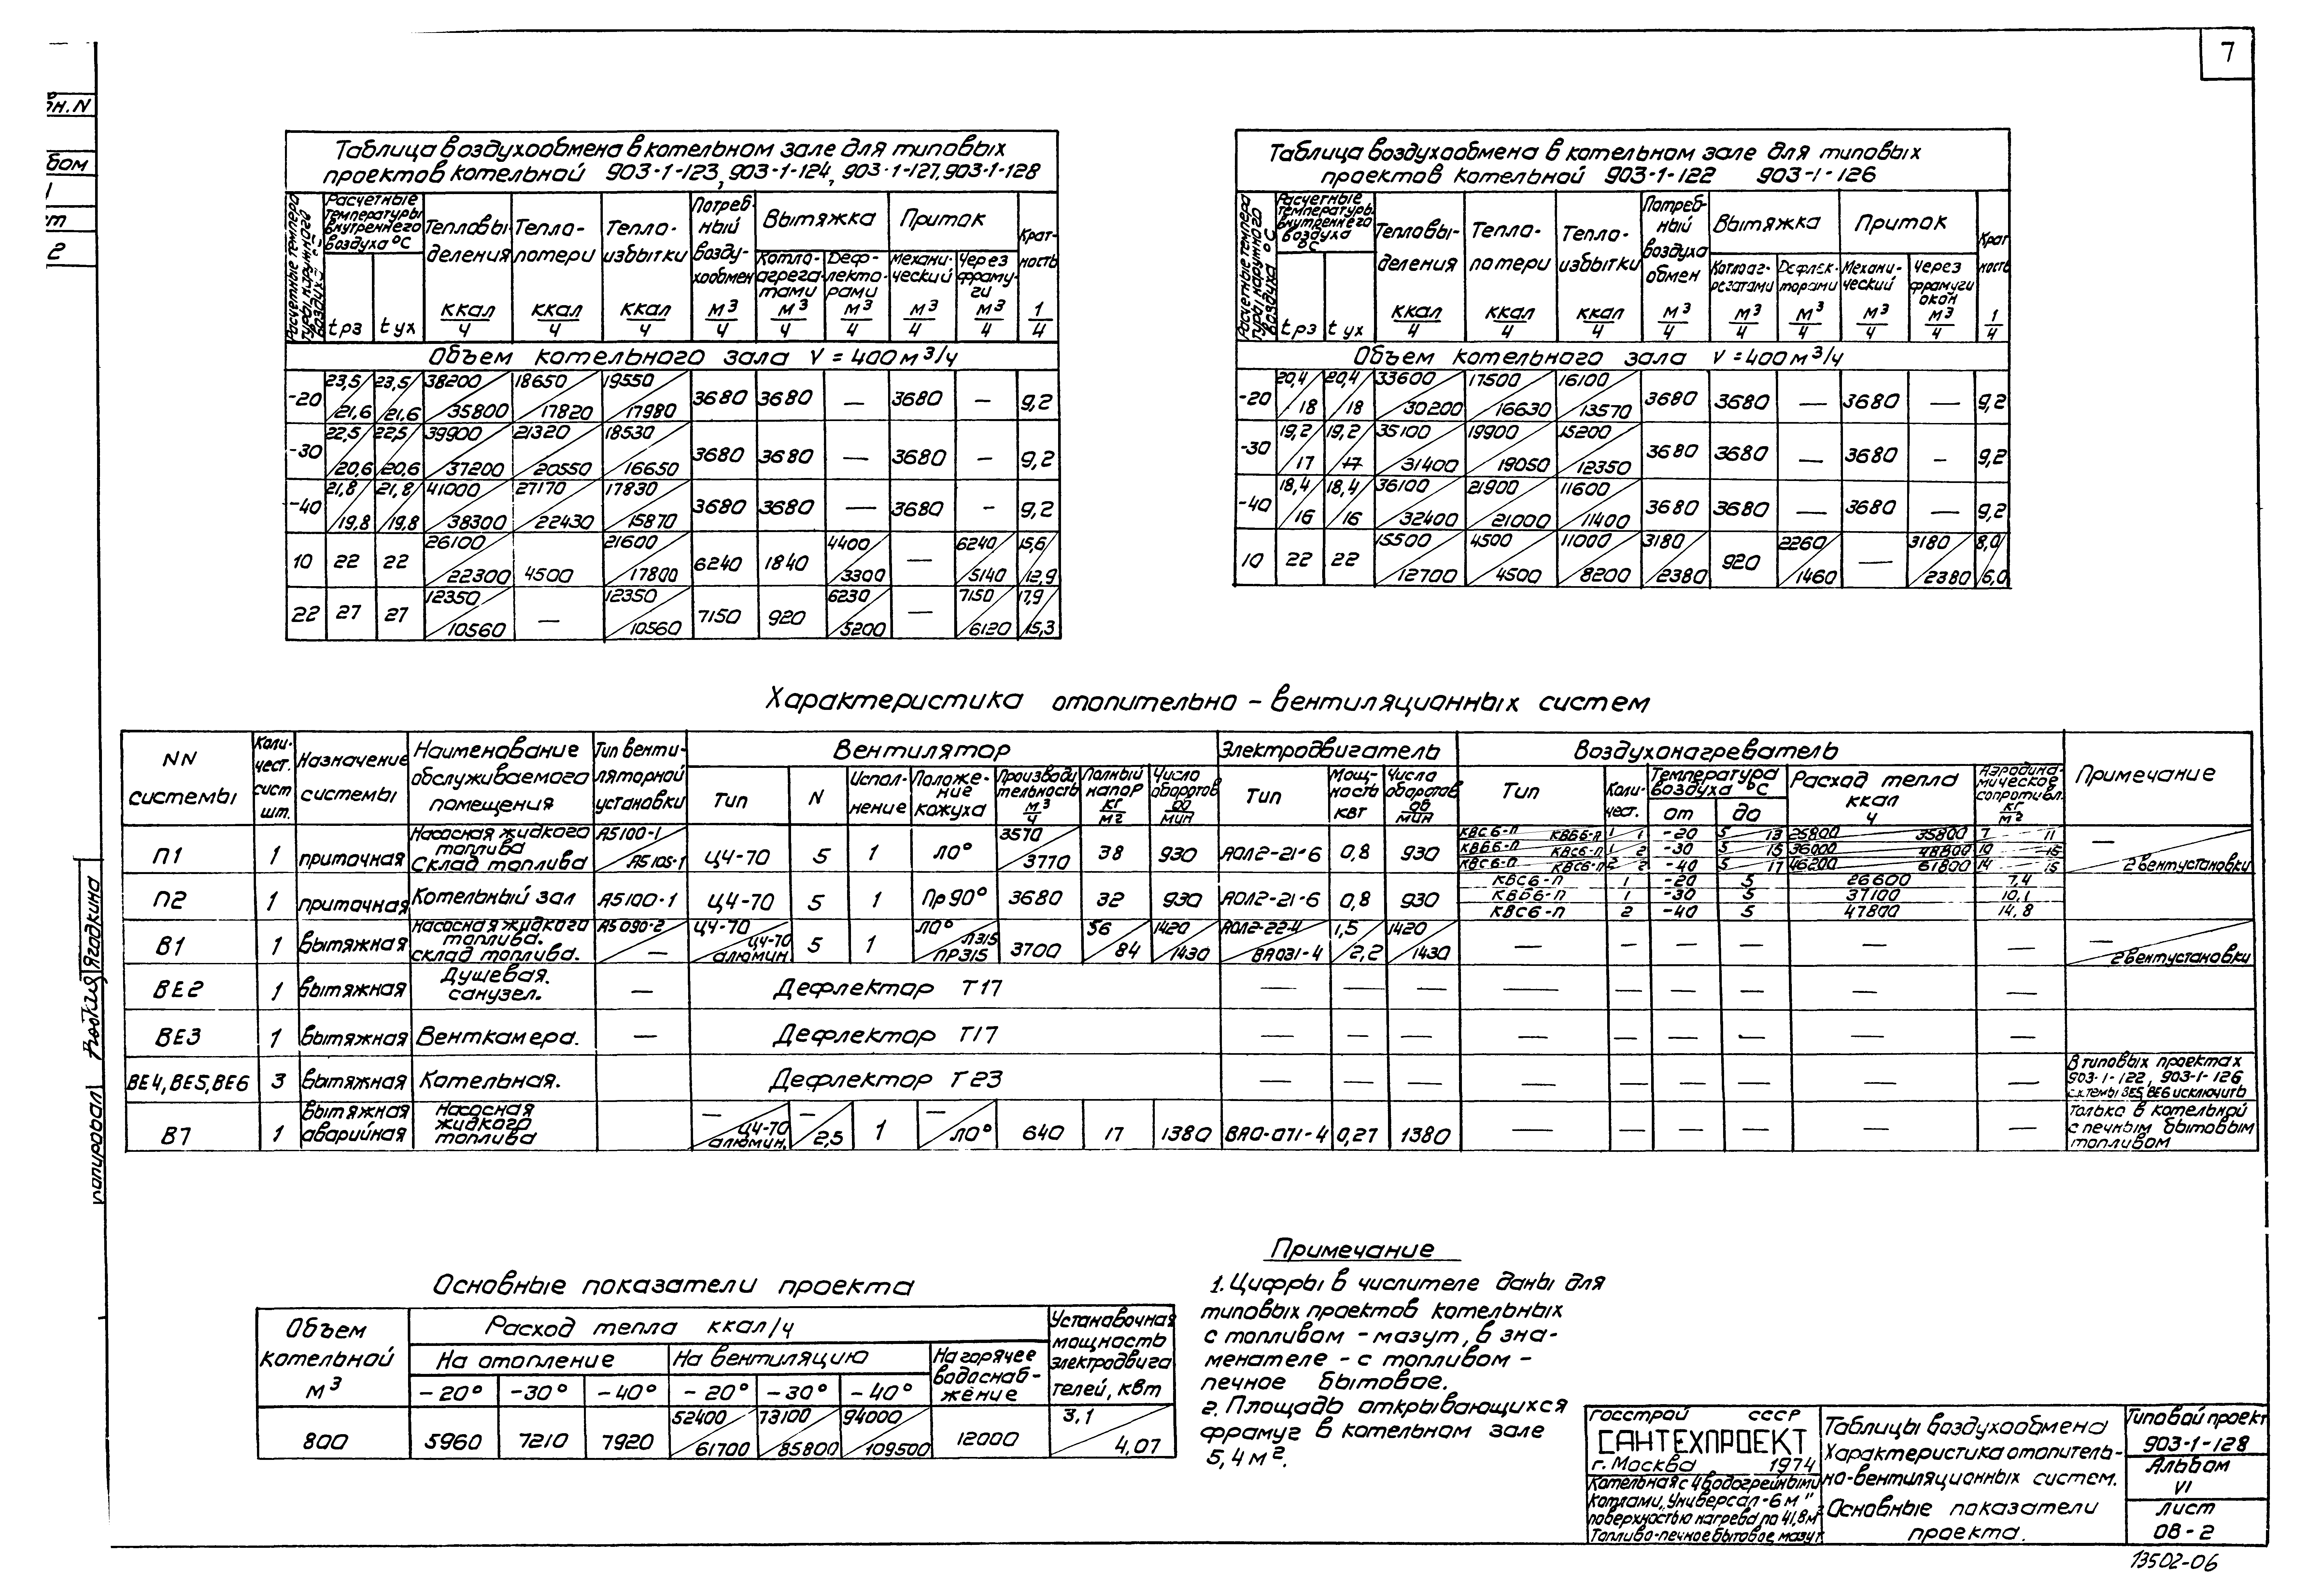 7
Таблица воздухообмена в котельном зале для типовых
проектов котельной 903-1-123, 903-1-124, 903-1-127, 903-1-128
Расчетные температуры внутреннего воздуха °С
Тепловыделения ккал/ч
Теплопотери ккал/ч
Теплоизбытки ккал/ч
Потребный воздухообмен м³/ч
Вытяжка
Приток
Кратность 1/ч
tрз tух
Котлоагрегатами м³/ч
Дефлекторами м³/ч
Механический м³/ч
Через фрамуги м³/ч
Объем котельного зала V = 400 м³/ч
-20 23,5/21,6 23,5/21,6 38200/35800 18650/17820 19550/17980 3680 3680 — 3680 — 9,2
-30 22,5/20,6 22,5/20,6 39900/37200 21320/20550 18530/16650 3680 3680 — 3680 — 9,2
-40 21,8/19,8 21,8/19,8 41000/38300 27170/22430 17830/15870 3680 3680 — 3680 — 9,2
10 22 22 26100/22300 4500 21600/17800 6240 1840 4400/3300 — 6240/5140 15,6/12,9
22 27 27 12350/10560 — 12350/10560 7150 920 6230/5200 — 7150/6120 17,9/15,3
Таблица воздухообмена в котельном зале для типовых
проектов котельной 903-1-122 903-1-126
Расчетные температуры внутреннего воздуха °С
Тепловыделения ккал/ч
Теплопотери ккал/ч
Теплоизбытки ккал/ч
Потребный воздухаобмен м³/ч
Вытяжка
Приток
Кратность 1/ч
tрз tух
Котлоагрегатами м³/ч
Дефлекторами м³/ч
Механический м³/ч
Через фрамуги окон м³/ч
Объем котельного зала V = 400 м³/ч
-20 20,4/18 20,4/18 33600/30200 17500/16630 16100/13570 3680 3680 — 3680 — 9,2
-30 19,2/17 19,2/17 35100/31400 19900/19050 15200/12350 3680 3680 — 3680 — 9,2
-40 18,4/16 18,4/16 36100/32400 21900/21000 11600/11400 3680 3680 — 3680 — 9,2
10 22 22 15500/12700 4500/4500 11000/8200 3180/2380 920 2260/1460 — 3180/2380 8,0/6,0
Характеристика отопительно-вентиляционных систем
NN системы
Количест. сист. шт.
Назначение системы
Наименование обслуживаемого помещения
Тип вентиляторной установки
Вентилятор
Электродвигатель
Воздухонагреватель
Примечание
Тип N Исполнение Положение кожуха Производительность м³/ч Полный напор кг/м² Число оборотов об/мин
Тип Мощность квт Число оборотов об/мин
Тип Количест. Температура воздуха °С от до Расход тепла ккал/ч Аэродинамическое сопротивл. кг/м²
П1 1 приточная Насосная жидкого топлива Склад топлива А5100-1/А5105-1 Ц4-70 5 1 Л0° 3570/3770 38 930 АОЛ2-21-6 0,8 930
КВС6-п КВБ6-п 1 1 -20 5 13 25800 35800 7 11
КВБ6-п КВС6-п 1 2 -30 5 15 36000 48800 10 15
КВС6-п КВС6-п 2 2 -40 5 17 46200 61800 14 15
— / 2 вентустановки
П2 1 приточная Котельный зал А5100-1 Ц4-70 5 1 Пр90° 3680 32 930 АОЛ2-21-6 0,8 930
КВС6-п 1 -20 5 26600 7,4
КВБ6-п 1 -30 5 37100 10,1
КВС6-п 2 -40 5 47800 14,8
В1 1 вытяжная Насосная жидкого топлива. склад топлива. А5090-2/— Ц4-70/Ц4-70 алюмин. 5 1 Л0°/Л315 ПР315 3700 56/84 1420/1430 АОЛ2-22-4/ВАО31-4 1,5/2,2 1420/1430 — — — — — — —/2 вентустановки
ВЕ2 1 вытяжная Душевая. санузел. — Дефлектор Т17 — — — — — — — — —
ВЕ3 1 вытяжная Венткамера. — Дефлектор Т17 — — — — — — — — —
ВЕ4, ВЕ5, ВЕ6 3 вытяжная Котельная. Дефлектор Т23 — — — — — — — — — В типовых проектах 903-1-122, 903-1-126 системы ВЕ5, ВЕ6 исключить
В7 1 вытяжная аварийная Насосная жидкого топлива —/Ц4-70 алюмин. —/2,5 1 —/Л0° 640 17 1380 ВАО-071-4 0,27 1380 — — — — — — только в котельной с печным бытовым топливом
Основные показатели проекта
Объем котельной м³
Расход тепла ккал/ч
Установочная мощность электродвигателей, квт
На отопление На вентиляцию На горячее водоснабжение
-20° -30° -40° -20° -30° -40°
800 5960 7210 7920 52400/61700 73100/85800 94000/109500 12000 3,1/4,07
Примечание
1. Цифры в числителе даны для
типовых проектов котельных
с топливом - мазут, в зна-
менателе - с топливом -
печное бытовое.
2. Площадь открывающихся
фрамуг в котельном зале
5,4 м².
Госстрой СССР
САНТЕХПРОЕКТ
г. Москва 1974
Котельная с 4 водогрейными
котлами „Универсал-6м"
поверхностью нагрева по 41,8 м²
Топливо-печное бытовое, мазут
Таблицы воздухообмена
Характеристика отопитель-
но-вентиляционных систем.
Основные показатели
проекта.
Типовой проект
903-1-128
Альбом
VI
Лист
ОВ-2
13502-06